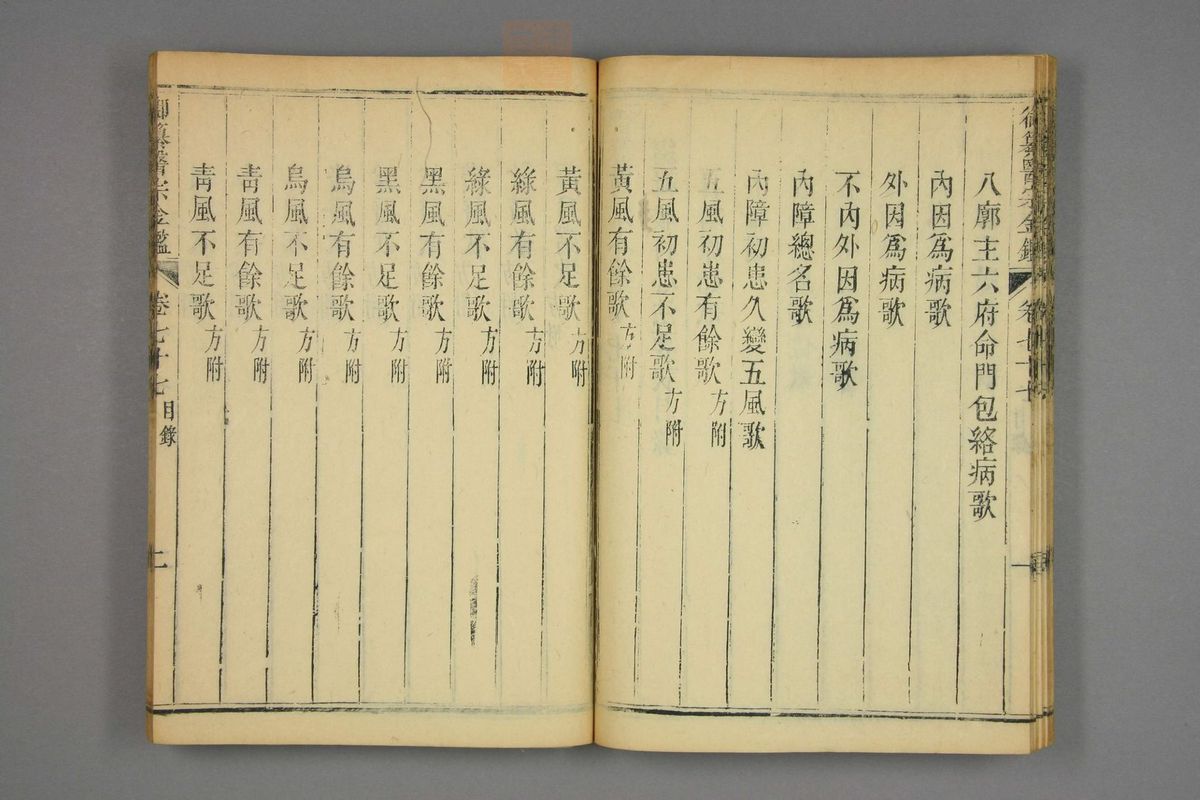 御纂醫宗金鑑 卷七十七 一
八廓主六府命門包絡病歌
內因為病歌
外因為病歌
不內外因為病歌
內障總名歌
內障初患久變五風歌
五風初患有餘歌 方附
五風初患不足歌 方附
黃風有餘歌 方附
黃風不足歌 方附
綠風有餘歌 方附
綠風不足歌 方附
黑風有餘歌 方附
黑風不足歌 方附
烏風有餘歌 方附
烏風不足歌 方附
青風有餘歌 方附
青風不足歌 方附
御纂醫宗金鑑 卷七十七 目錄 二